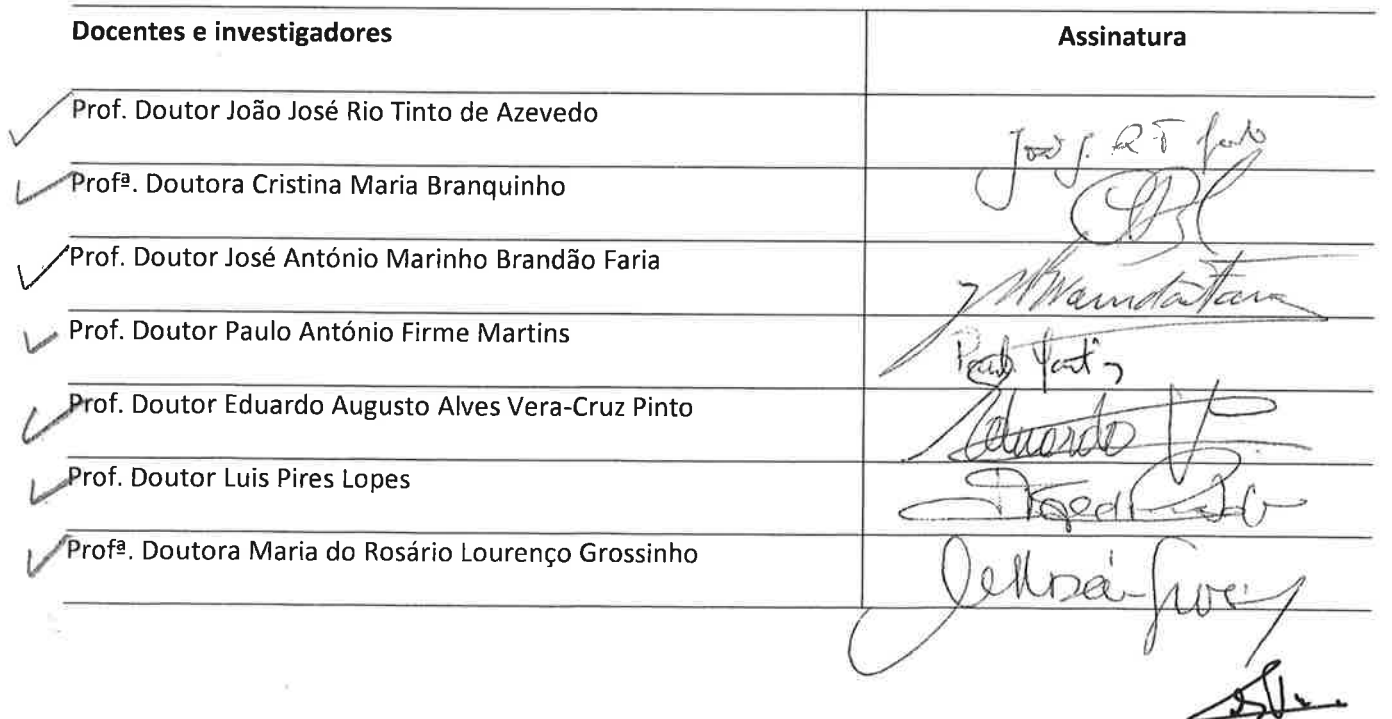 Docentes e investigadores Assinatura
Prof. Doutor João José Rio Tinto de Azevedo
Profª. Doutora Cristina Maria Branquinho
Prof. Doutor José António Marinho Brandão Faria
Prof. Doutor Paulo António Firme Martins
Paulo
Prof. Doutor Eduardo Augusto Alves Vera-Cruz Pinto
Eduardo V
Prof. Doutor Luis Pires Lopes
Profª. Doutora Maria do Rosário Lourenço Grossinho